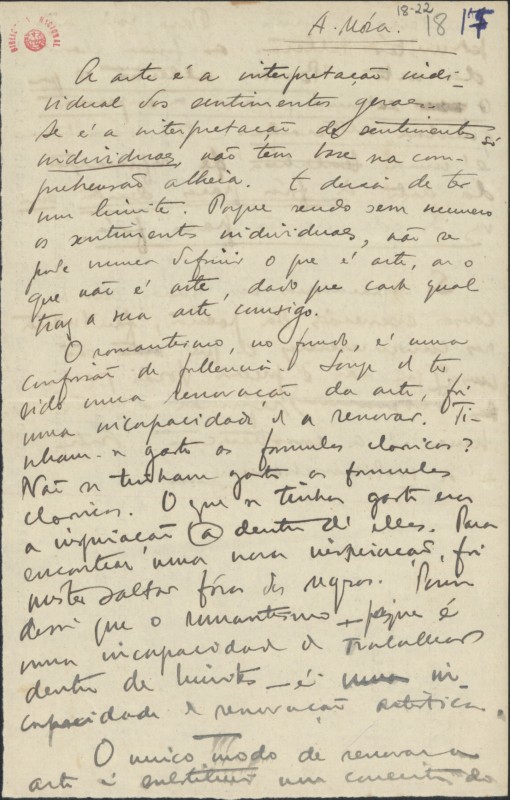 18-22
18 17
A. Móra.
A arte é a interpretação indi-
vidual dos sentimentos geraes.
Se é a interpretação de sentimentos só
individuaes, não têm base na com-
prehensão alheia. E deixa de ter
um limite. Porque sendo sem numero
os sentimentos individuaes, não se
pode nunca definir o que é arte, ou o
que não é arte, dado que cada qual
traz a sua arte consigo.
O romantismo, no fundo, é uma
confissão de fallencia. Longe de ter
sido uma renovação da arte, foi
uma incapacidade de a renovar. Ti-
nham-se gasto as formulas classicas?
Não se tinham gasto as formulas
classicas. O que se tinha gasto era
a inspiração dentro d'ellas. Para
encontrar uma nova inspiração, foi
mister saltar fóra das regras. Porisso
disse que o romantismo — porque é
uma incapacidade de trabalhar
dentro de limites — é uma in-
capacidade de renovação artistica.
O unico modo de renovar a
arte é substituir um conceito do